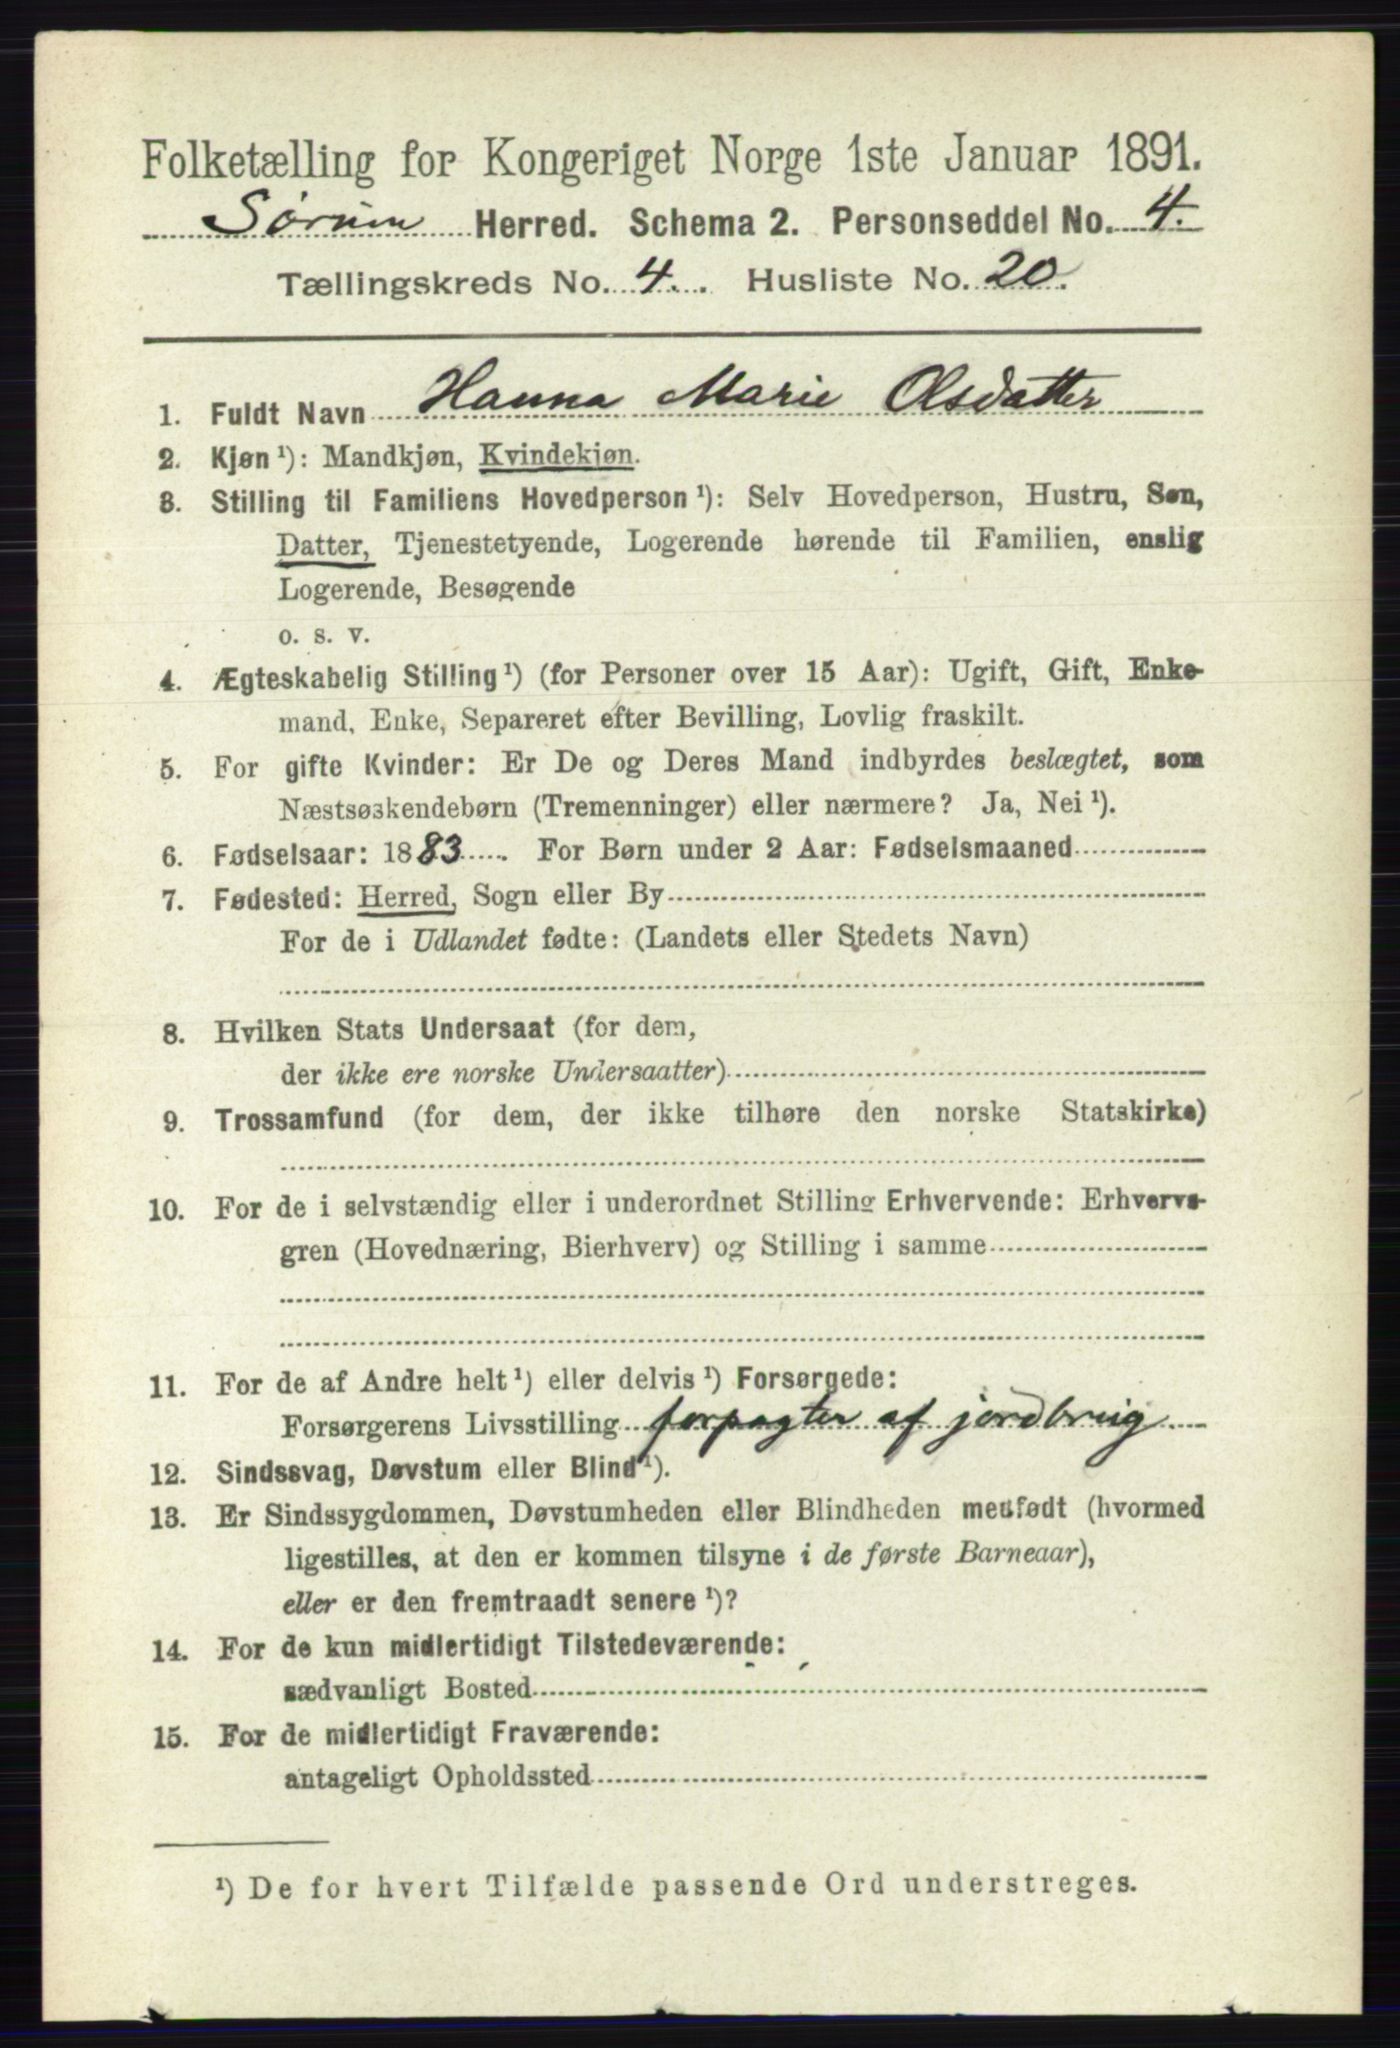 Folketælling for Kongeriget Norge 1ste Januar 1891.
Sørum Herred. Schema 2. Personseddel No. 4.
Tællingskreds No. 4. Husliste No. 20.
1. Fuldt Navn Hanna Marie Olsdatter
2. Kjøn ¹): Mandkjøn, Kvindekjøn.
3. Stilling til Familiens Hovedperson ¹): Selv Hovedperson, Hustru, Søn,
Datter, Tjenestetyende, Logerende hørende til Familien, enslig
Logerende, Besøgende
o. s. v.
4. Ægteskabelig Stilling ¹) (for Personer over 15 Aar): Ugift, Gift, Enke-
mand, Enke, Separeret efter Bevilling, Lovlig fraskilt.
5. For gifte Kvinder: Er De og Deres Mand indbyrdes beslægtet, som
Næstsøskendebørn (Tremenninger) eller nærmere? Ja, Nei ¹).
6. Fødselsaar: 1883. For Børn under 2 Aar: Fødselsmaaned
7. Fødested: Herred, Sogn eller By
For de i Udlandet fødte: (Landets eller Stedets Navn)
8. Hvilken Stats Undersaat (for dem,
der ikke ere norske Undersaatter)
9. Trossamfund (for dem, der ikke tilhøre den norske Statskirke)
10. For de i selvstændig eller i underordnet Stilling Erhvervende: Erhvervs-
gren (Hovednæring, Bierhverv) og Stilling i samme
11. For de af Andre helt ¹) eller delvis ¹) Forsørgede:
Forsørgerens Livsstilling forpagter af jordbrug
12. Sindssvag, Døvstum eller Blind ¹).
13. Er Sindssygdommen, Døvstumheden eller Blindheden medfødt (hvormed
ligestilles, at den er kommen tilsyne i de første Barneaar),
eller er den fremtraadt senere ¹)?
14. For de kun midlertidigt Tilstedeværende:
sædvanligt Bosted
15. For de midlertidigt Fraværende:
antageligt Opholdssted
¹) De for hvert Tilfælde passende Ord understreges.